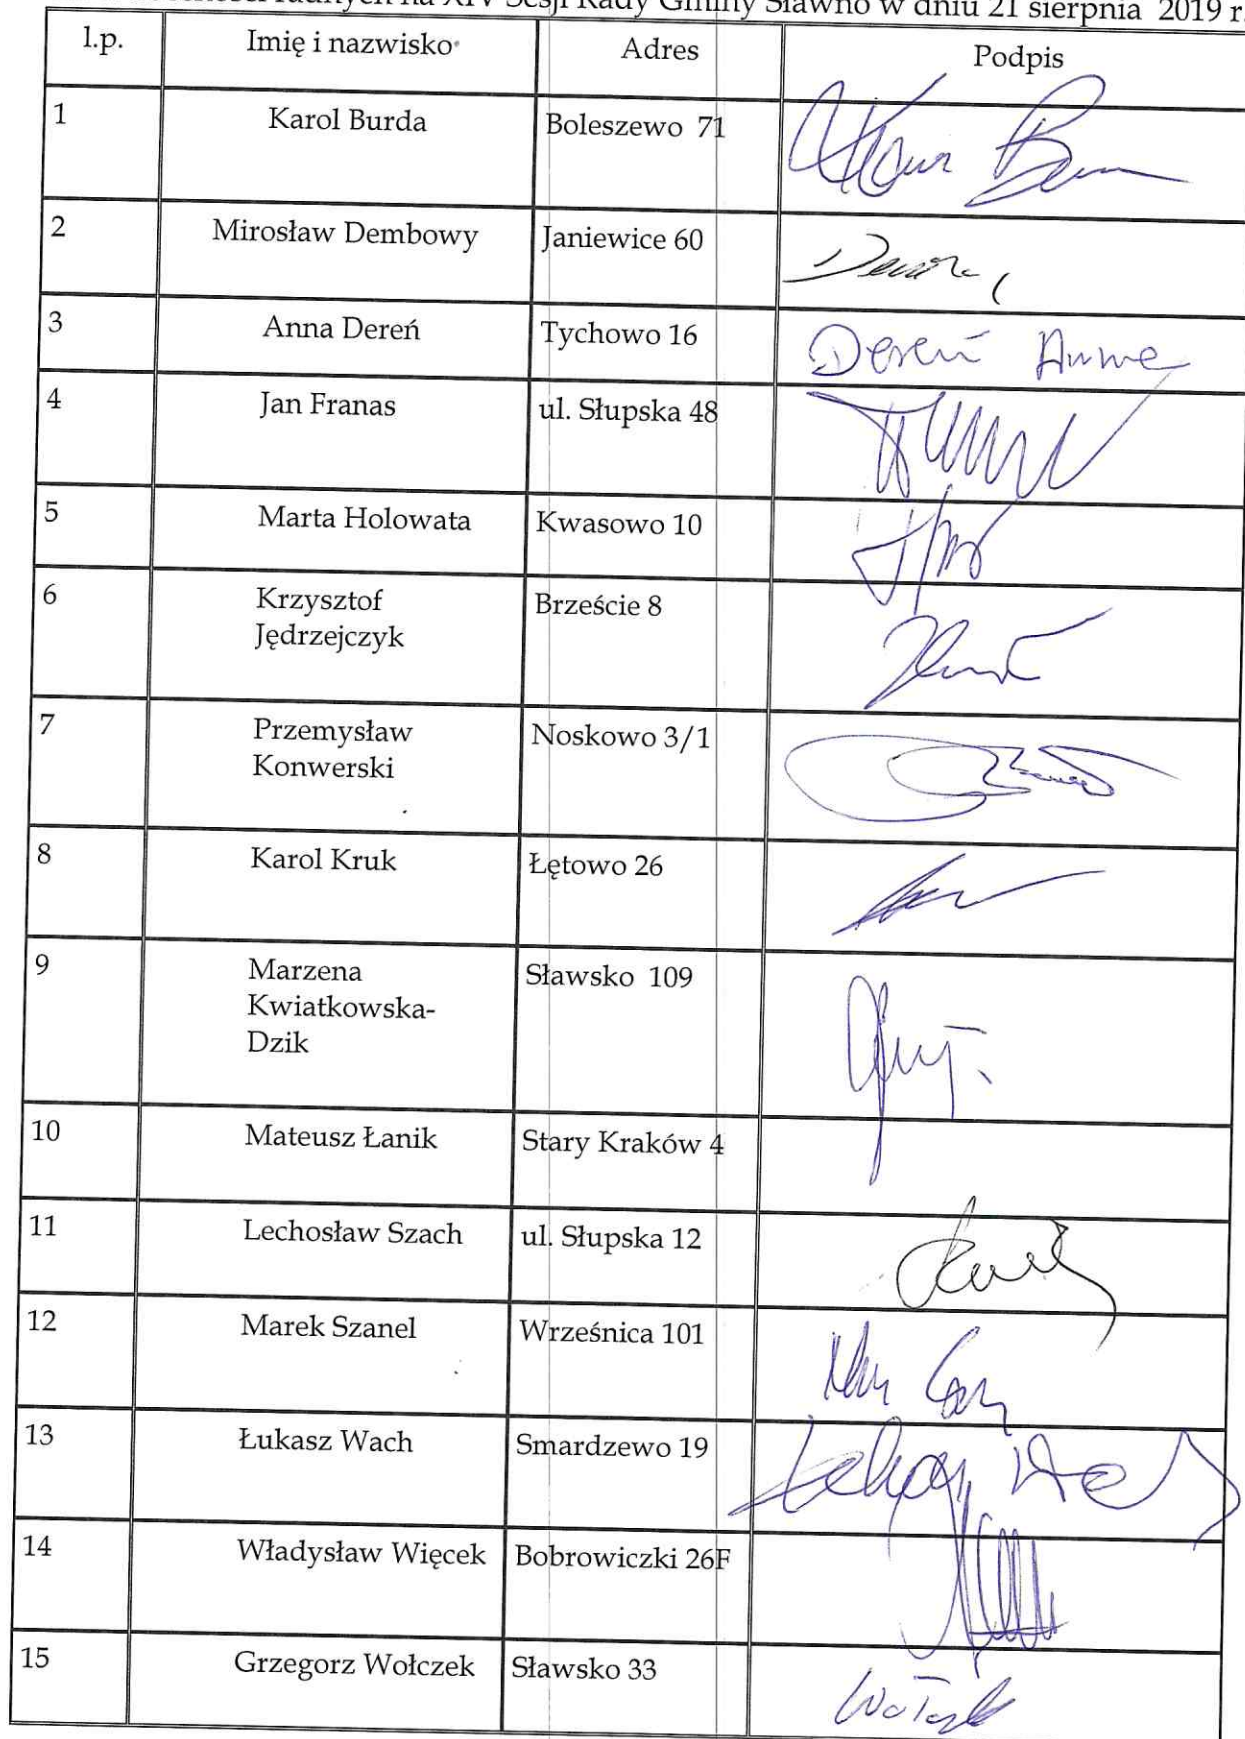 radnych na XIV Sesji Rady Gminy Sławno w dniu 21 sierpnia 2019 r.
l.p. Imię i nazwisko Adres Podpis
1 Karol Burda Boleszewo 71
2 Mirosław Dembowy Janiewice 60
3 Anna Dereń Tychowo 16 Dereń Anna
4 Jan Franas ul. Słupska 48
5 Marta Holowata Kwasowo 10
6 Krzysztof Brzeście 8
Jędrzejczyk
7 Przemysław Noskowo 3/1
Konwerski
8 Karol Kruk Łętowo 26
9 Marzena Sławsko 109
Kwiatkowska-
Dzik
10 Mateusz Łanik Stary Kraków 4
11 Lechosław Szach ul. Słupska 12
12 Marek Szanel Wrześnica 101
13 Łukasz Wach Smardzewo 19
14 Władysław Więcek Bobrowiczki 26F
15 Grzegorz Wołczek Sławsko 33